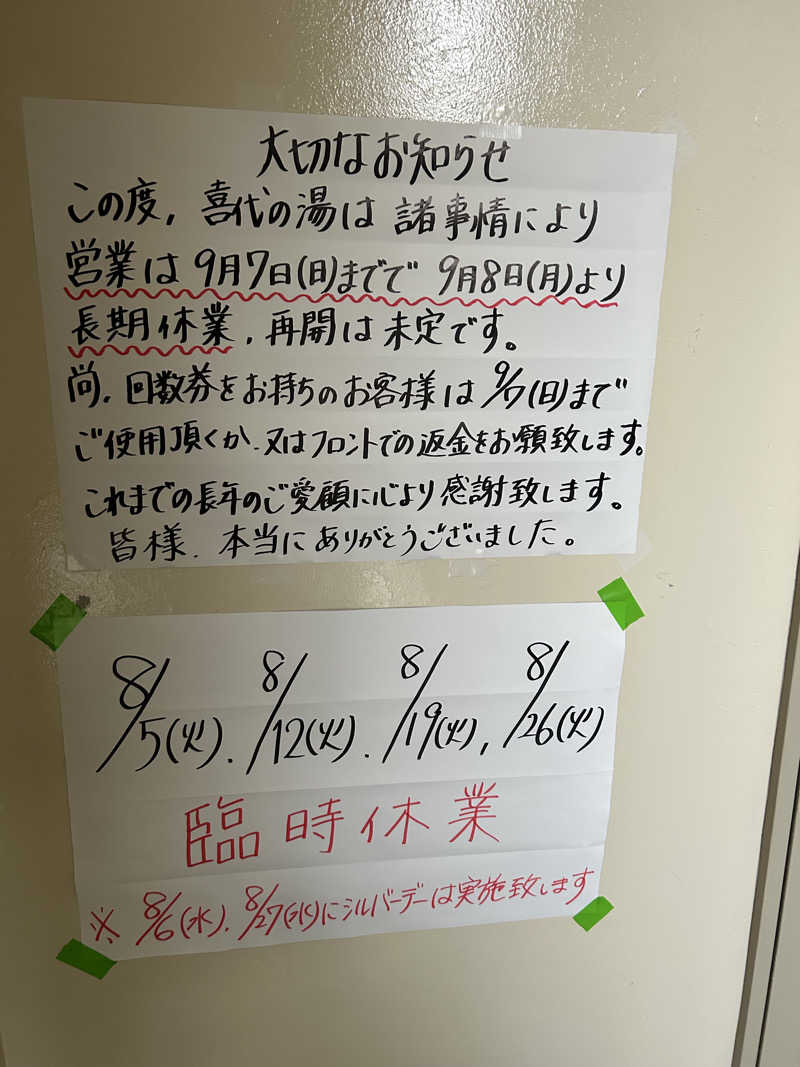 大切なお知らせ
この度, 喜代の湯は 諸事情により
営業は 9月7日(日)までで 9月8日(月)より
長期休業, 再開は 未定です。
尚, 回数券をお持ちのお客様は 9/7(日)まで
ご使用頂くか. 又はフロントでの返金をお願致します。
これまでの長年のご愛顧に心より感謝致します。
皆様. 本当にありがとうございました。
8/5(火). 8/12(火). 8/19(火), 8/26(火)
臨時休業
※ 8/6(水). 8/27(水)にシルバーデーは実施致します